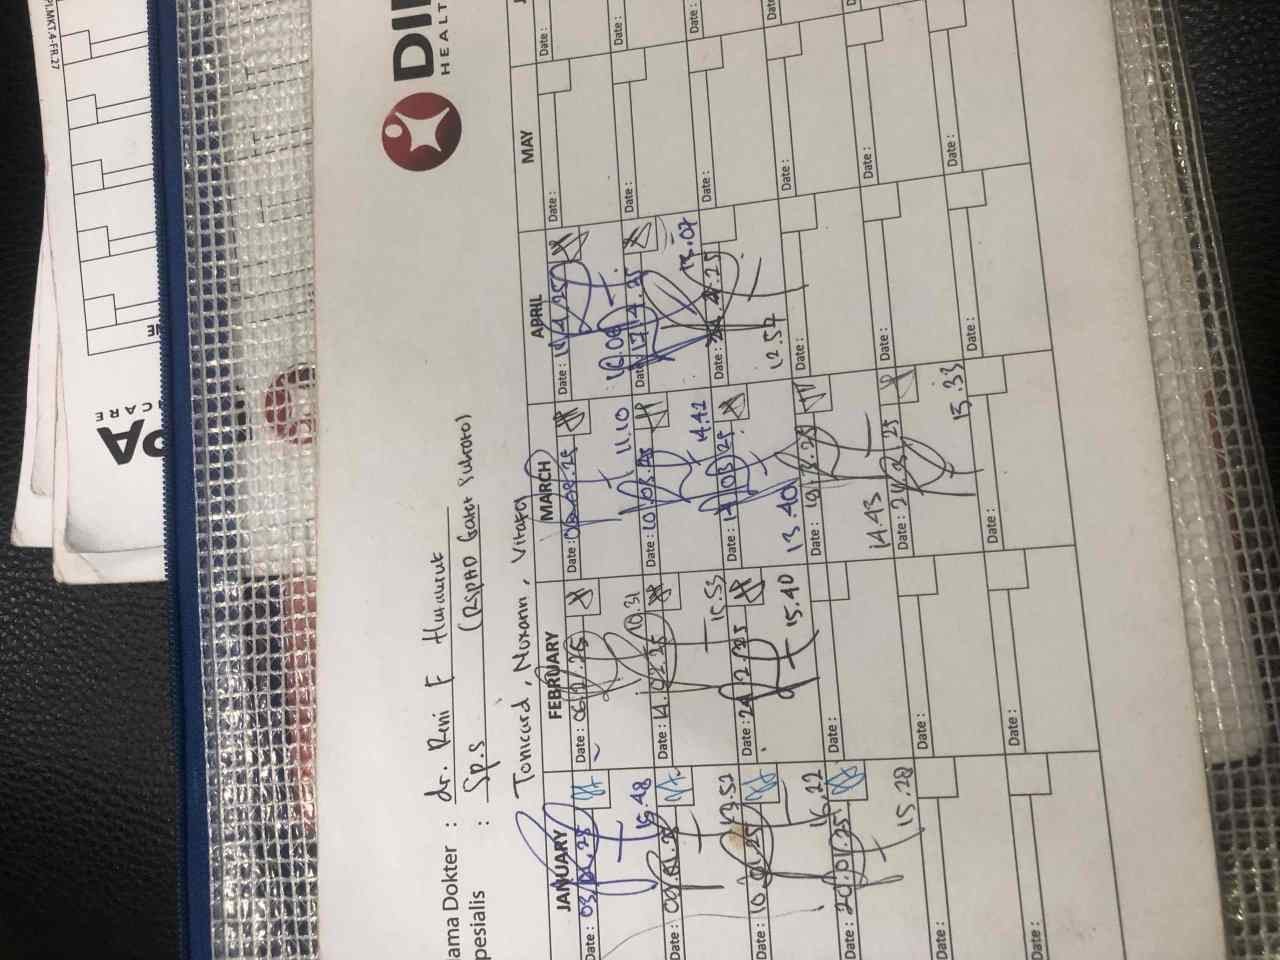 PI.MKT-4-FR.27
PA
NCARE
DIP
HEALT
ama Dokter : dr. Reni F Hutauruk
pesialis : Sp.S (RSPAD Gatot Subroto)
Tonicard, Nuxann, Vitaxon
JANUARY FEBRUARY MARCH APRIL MAY
Date : 03.01.25
15.48
Date : 06.2.25
10.31
Date :
11.10
Date :
Date :
Date :
Date :
13.52
Date : 14.02.25
15.53
Date : 10.03.25
14.42
Date : 17.4.25
13.07
Date :
Date :
Date : 10.01.25
15.22
Date : 24.02.25
15.40
Date :
13.40
Date :
12.57
Date :
Date :
Date : 20.01.25
15.28
Date :
Date : 19.3.25
14.43
Date :
Date :
Date :
Date :
Date :
Date :
15.33
Date :
Date :
Date :
Date :
Date :
Date :
Date :